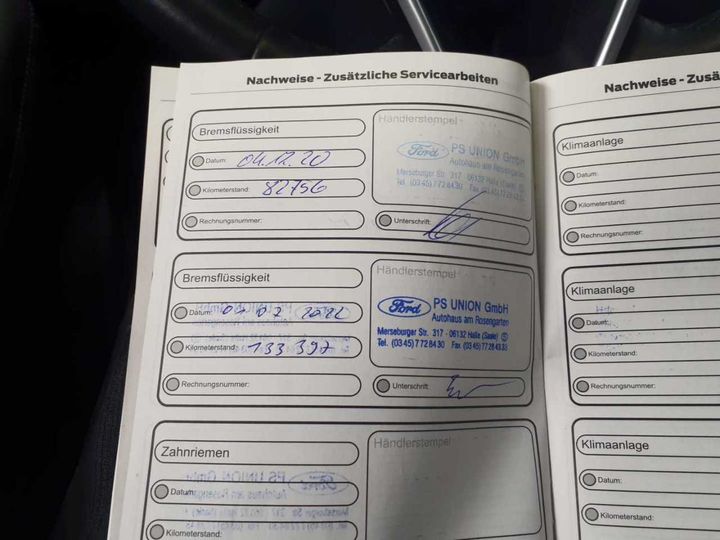 Nachweise - Zusätzliche Servicearbeiten
Bremsflüssigkeit
Datum: 04.12.20
Kilometerstand: 82756
Rechnungsnummer:
Händlerstempel
Ford PS UNION GmbH
Autohaus am Rosengarten
Merseburger Str. 317 06132 Halle (Saale)
Tel. (0345) 7 72 84 30
Unterschrift:
Bremsflüssigkeit
Datum:
Kilometerstand: 133 397
Rechnungsnummer:
Händlerstempel
Ford PS UNION GmbH
Autohaus am Rosengarten
Merseburger Str. 317 · 06132 Halle (Saale)
Tel. (03 45) 7 72 84 30 Fax (03 45) 7 72 84 33 33
Unterschrift:
Zahnriemen
Datum:
Kilometerstand:
Händlerstempel
Nachweise - Zusä
Klimaanlage
Datum:
Kilometerstand:
Rechnungsnummer:
Klimaanlage
Datum:
Kilometerstand:
Rechnungsnummer:
Klimaanlage
Datum:
Kilometerstand: